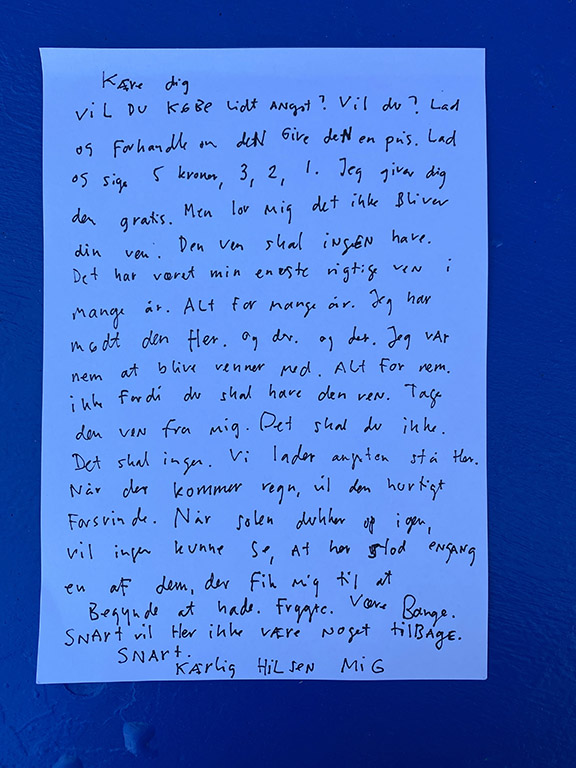 Kære dig
ViL DU KØBE lidt ANgst? Vil du? Lad
og Forhandle om deN Give deN en pris. Lad
og sige 5 kroner, 3, 2, 1. Jeg giver dig
den gratis. Men lov mig det ikke Bliver
din ven. Den ven skal iNGEN have.
Det har været min eneste rigtige ven i
mange år. ALt For mange år. Jeg har
mødt den Her. og der. og der. Jeg vAr
nem at blive venner med. ALt For nem.
ikke Fordi du skal have den ven. Tage
den ven fra mig. Det skal du ikke.
Det skal ingen. Vi lader angsten stå Her.
Når der kommer regn, vil den hurtigt
Forsvinde. Når solen dukker op igen,
vil ingen kunne se, At her stod ENGANG
en aF dem, der Fik mig til at
Begynde at hade. Frygte. Være Bange.
SNArt vil Her ikke VÆRE NOGET tilBAGE.
SNArt.
KÆrlig HiLSEN MiG